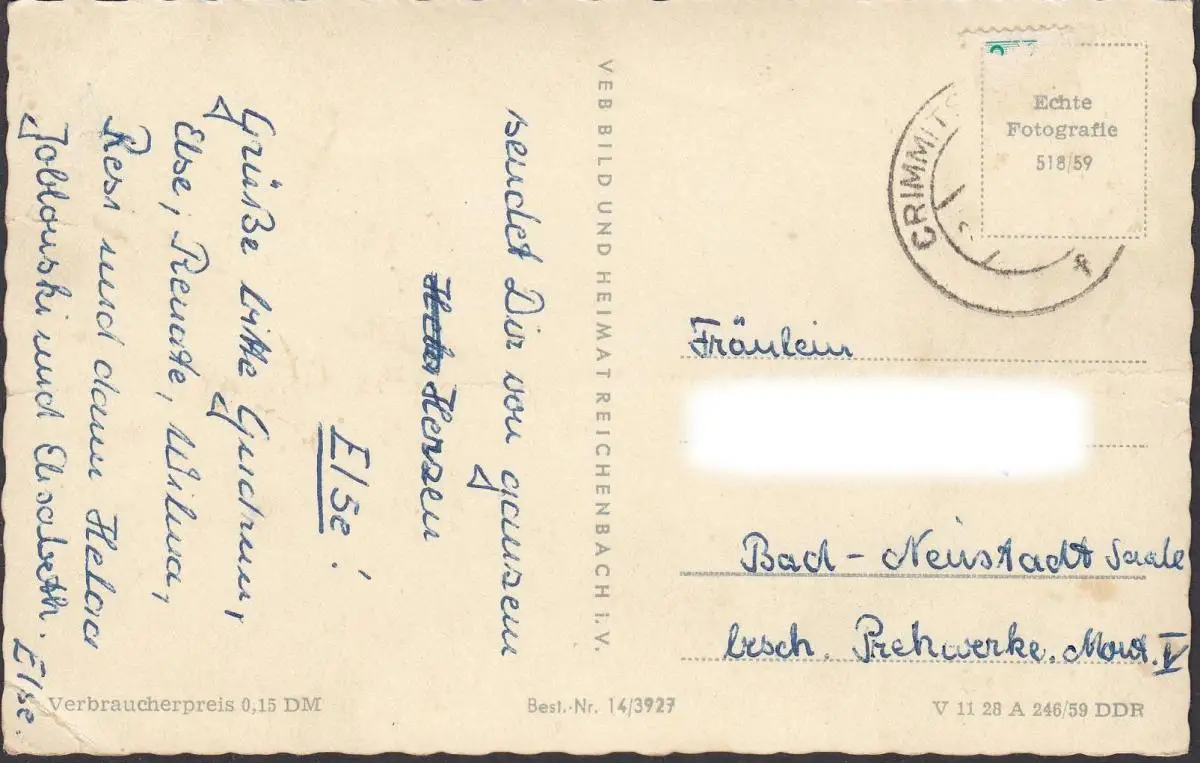 sendet Dir von ganzem
Herzen
Else!
Grüße bitte Gudrun,
Else, Renate, Wilma,
Resi und dann Helga
Joblouski und Elisabeth. Else.
VEB BILD UND HEIMAT REICHENBACH I. V.
Echte
Fotografie
518/59
CRIMMITS
f
Fräulein
Bad - Neustadt Saale
besch. Prehwerke. Mont. V
Verbraucherpreis 0,15 DM
Best.-Nr. 14/3927
V 11 28 A 246/59 DDR